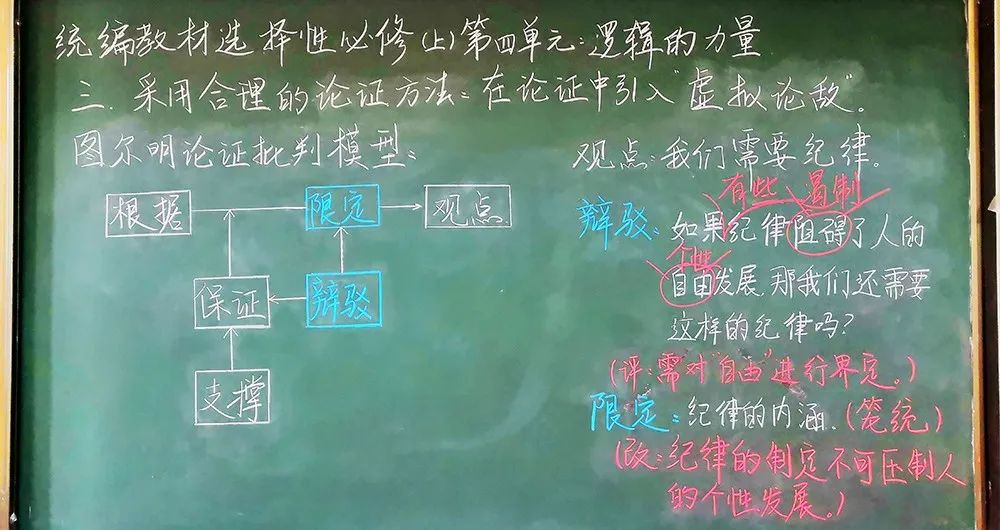 统编教材选择性必修(上)第四单元:逻辑的力量
三.采用合理的论证方法:在论证中引入"虚拟论敌"。
图尔明论证批判模型:
根据
限定
观点
保证
辩驳
支撑
观点:我们需要纪律。
有些 遏制
辩驳:如果纪律阻碍了人的
个性
自由发展,那我们还需要
这样的纪律吗?
(评:需对"自由"进行界定。)
限定:纪律的内涵.(笼统)
(改:纪律的制定不可压制人
的个性发展。)